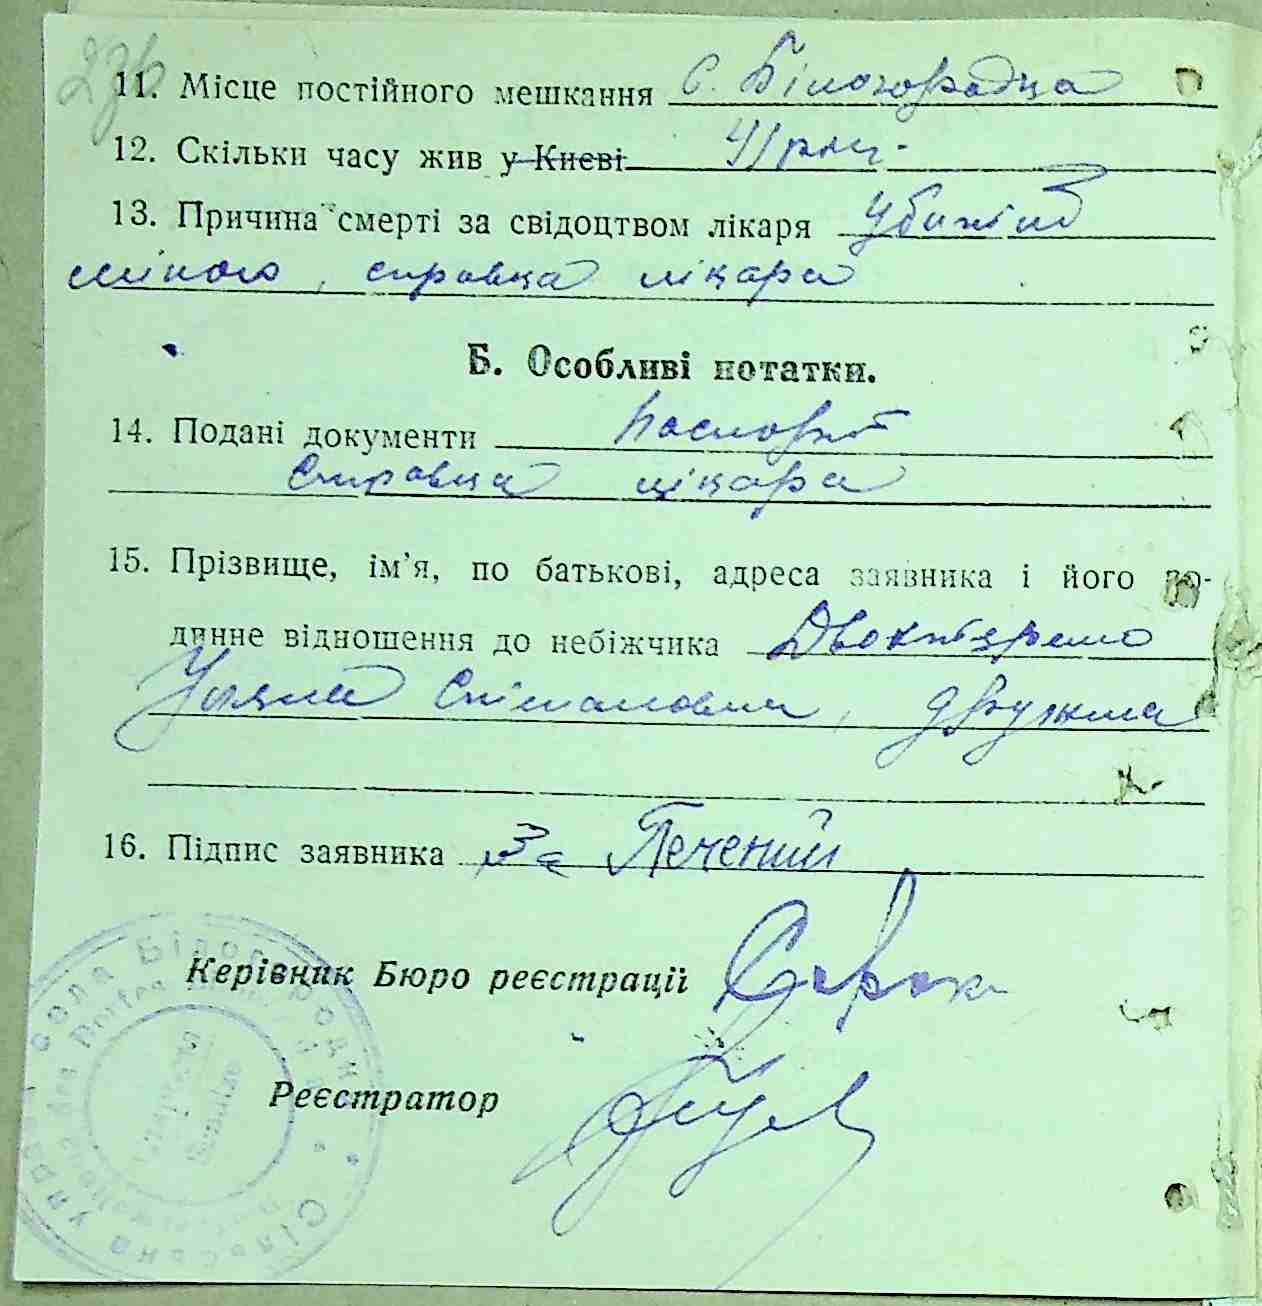 236
11. Місце постійного мешкання с. Білогородца
12. Скільки часу жив у Києві 41 рок.
13. Причина смерті за свідоцтвом лікаря Убитий
міною, справца ліцара
Б. Особливі нотатки.
14. Подані документи Паспорт
Справца ліцара
15. Прізвище, ім'я, по батькові, адреса заявника і його ро-
динне відношення до небіжчика
Уляна Степановна, дружина
16. Підпис заявника За Печений
Керівник Бюро реєстрації
Реєстратор
Сільська управа села Білогородки